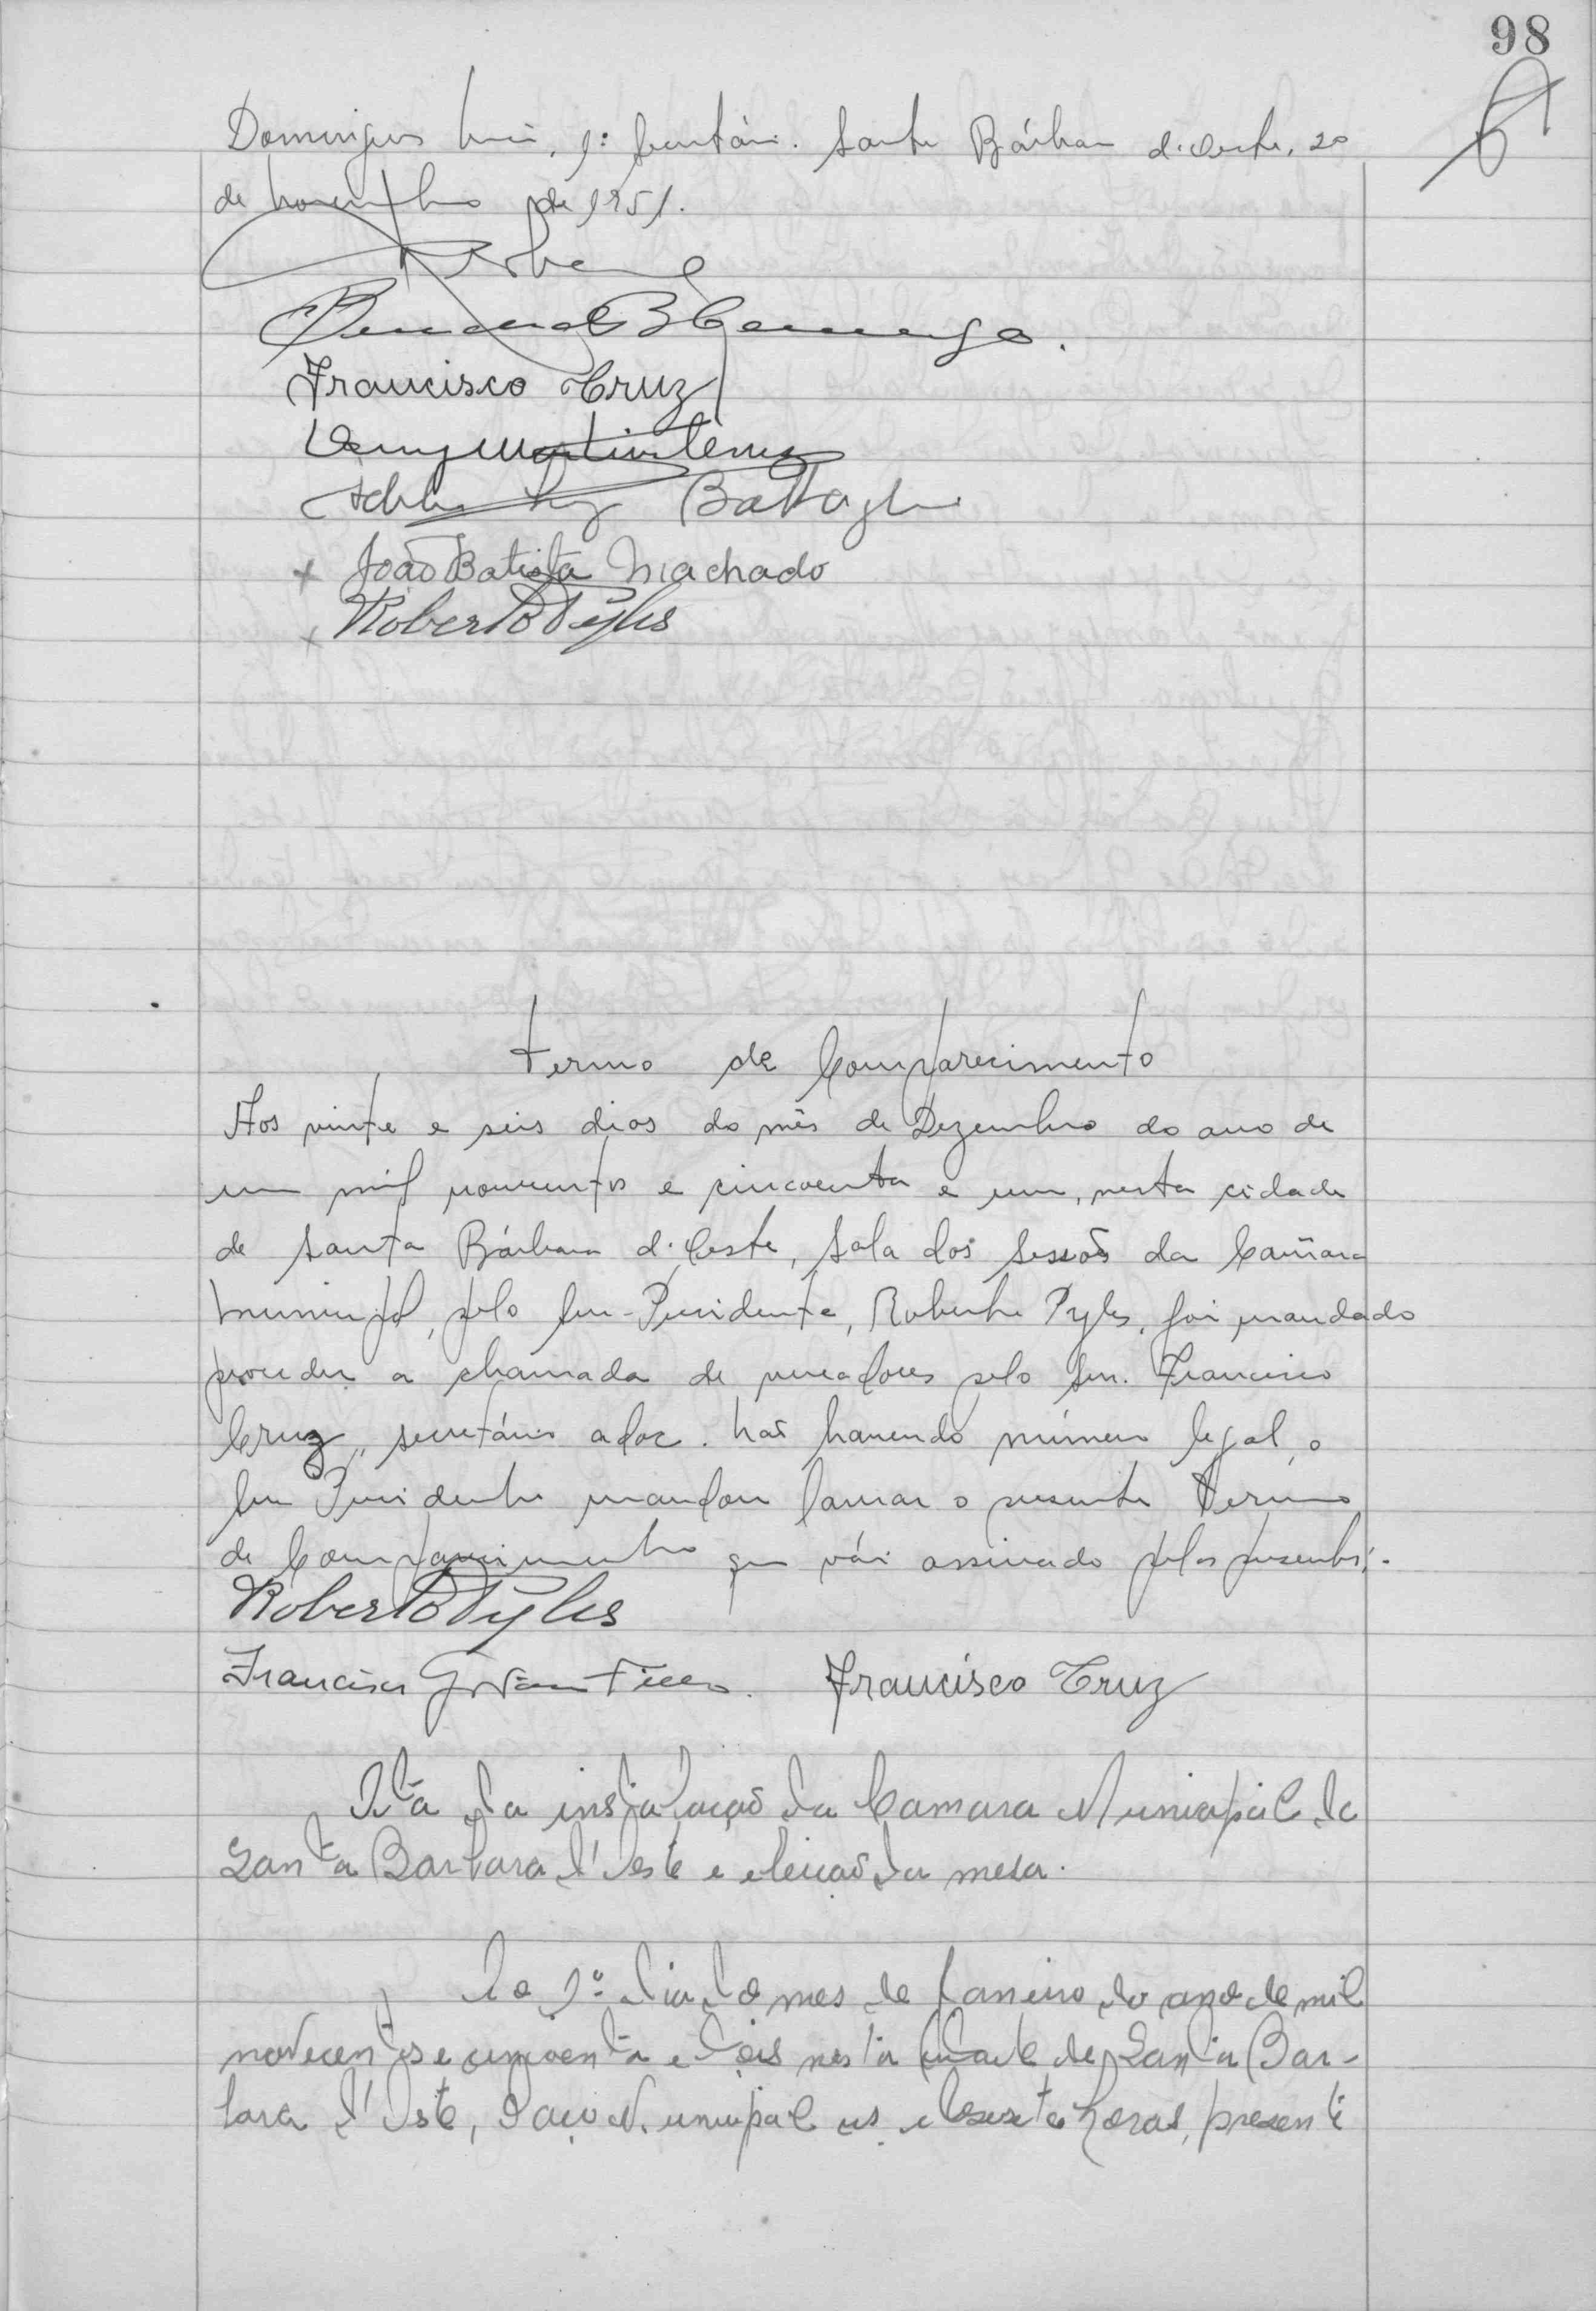 98
Domingos 1º Secretário. Santa Bárbara d'Oeste, 20
de novembro de 1951.
Francisco Cruz
Battagl
x João Batista Machado
x Roberto Pyles
Termo de Comparecimento
Aos vinte e seis dias do mês de Dezembro do ano de
um mil novecentos e cincoenta e um, nesta cidade
de Santa Bárbara d'Oeste, sala das sessões da Camara
Municipal, pelo Snr. Presidente, Roberto Pyles, foi mandado
proceder a chamada de vereadores pelo Snr. Francisco
Cruz, secretário adoc. Não havendo número legal, o
Snr Presidente mandou lavrar o presente Termo
de Comparecimento que vái assinado pelos presentes.
Roberto Pyles
Francisco Francisco Cruz
Ata da instalação da Camara Municipal de
Santa Barbara d'Oeste e eleição da mesa.
Ao 1º dia do mes de Janeiro do ano de mil
novecentos e cincoenta e dois nesta cidade de Santa Bar-
bara d'Oeste, Paço Municipal as dezesete horas, presente